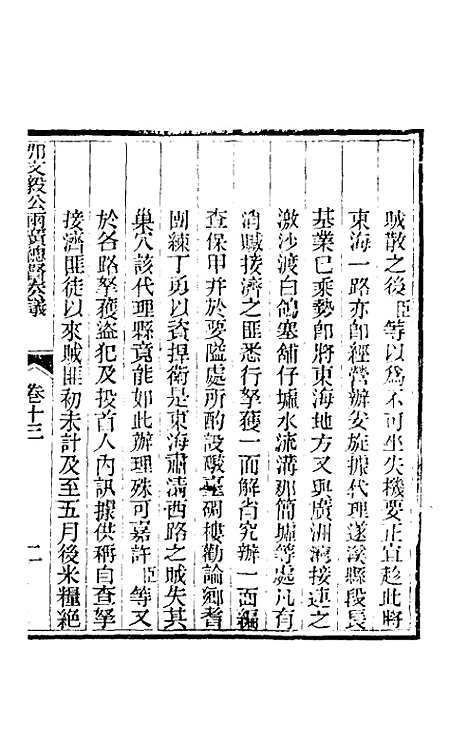 賊散之後臣等以爲不可坐失機要正宜趁此將
東海一路亦卽經營辦妥旋據代理遂溪縣段長
基業已乘勢卽將東海地方又與廣洲灣接連之
激沙渡白鴿塞舖仔墟水流溝那簡墟等處凡有
消贓接濟之匪悉行拏獲一面解省究辦一面編
查保甲幷於要隘處所酌設礮臺碉樓勸諭鄉耆
團練丁勇以資捍衛是東海肅清西路之賊失其
巢穴該代理縣竟能如此辦理殊可嘉許臣等又
於各路拏獲盜犯及投首人內訊據供稱自查拏
接濟匪徒以來賊匪初未計及至五月後米糧絕
那文毅公兩廣總督奏議
卷十三
二